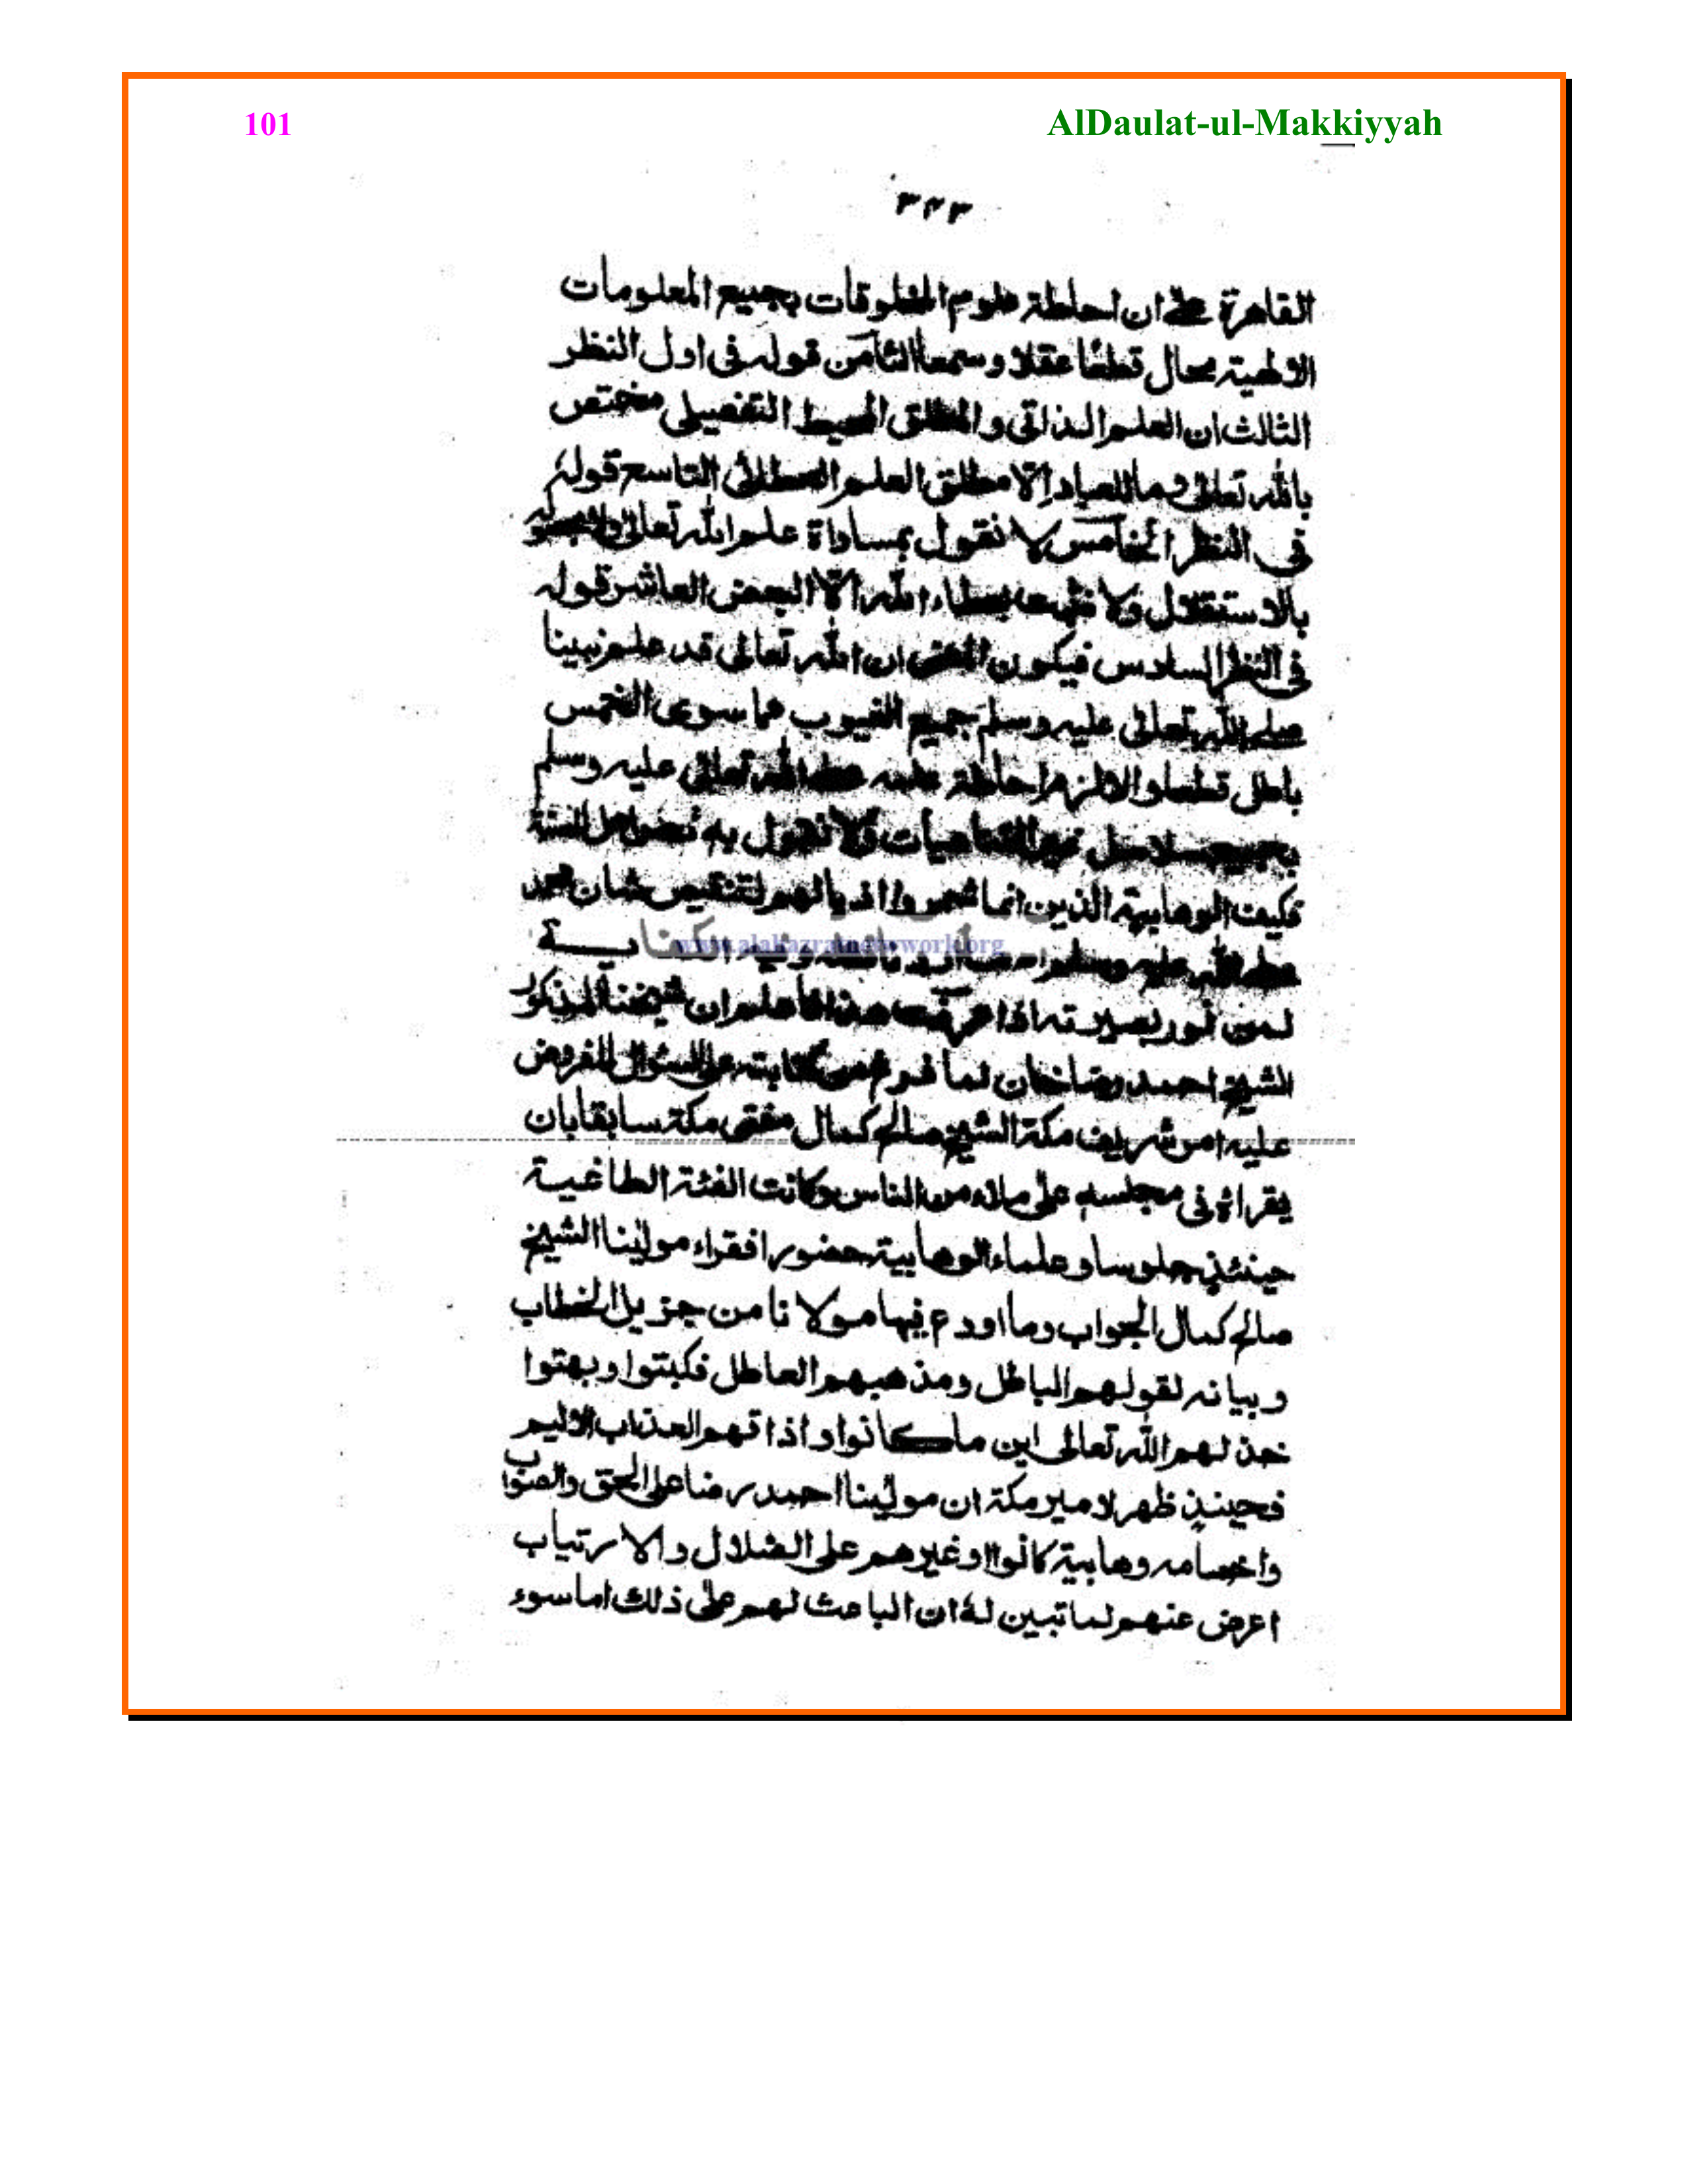 101
AlDaulat-ul-Makkiyyah
٣٢٣
القاهرة على ان احاطة علوم المخلوقات بجميع المعلومات
الالهية محال قطعا عقلا وسمعا الثامن قوله فى اول النظر
الثالث ان العلم الذاتى والمطلق المحيط التفصيلى مختص
بالله تعالى وما للعباد الا مطلق العلم العطائى التاسع قوله
فى النظر الخامس لا نقول بمساواة علم الله تعالى ولا بحصوله
بالاستقلال ولا نثبت بعطاء الله الا البعض العاشر قوله
فى النظر السادس فيكون المعنى ان الله تعالى قد علم نبينا
صلى الله تعالى عليه وسلم جميع الغيوب مما سوى الخمس
باطل قطعا والا لزم احاطة علمه صلى الله تعالى عليه وسلم
بجميع سلاسل غير المتناهيات ولا نقول به نحن اهل السنة
فكيف الوهابية الذين انما شمروا اذيالهم لتنقيص شان محمد
صلى الله عليه وسلم الكفاية
لمن نور بصيرته اذا عرفت هذا فاعلم ان شيخنا المذكور
الشيخ احمد رضا خان لما فرغ من كتابته على السؤال المفروض
عليه امر شريف مكة الشيخ صالح كمال مفتى مكة سابقا بان
يقراه فى مجلسه على ملاء من الناس وكانت الفئة الطاغية
حينئذ جلوسا وعلماء الوهابية حضورا فقراء مولينا الشيخ
صالح كمال الجواب وما اودع فيها مولانا من جزيل الخطاب
وبيانه لقولهم الباطل ومذهبهم العاطل فكبتوا وبهتوا
خذلهم الله تعالى اين ما كانوا واذاقهم العذاب الاليم
فحينئذ ظهر لامير مكة ان مولينا احمد رضا على الحق والصواب
واخصامه وهابية كانوا اوغيرهم على الضلال والارتياب
اعرض عنهم لما تبين له ان الباعث لهم على ذلك اما سوء
www.alahazratnetwork.org